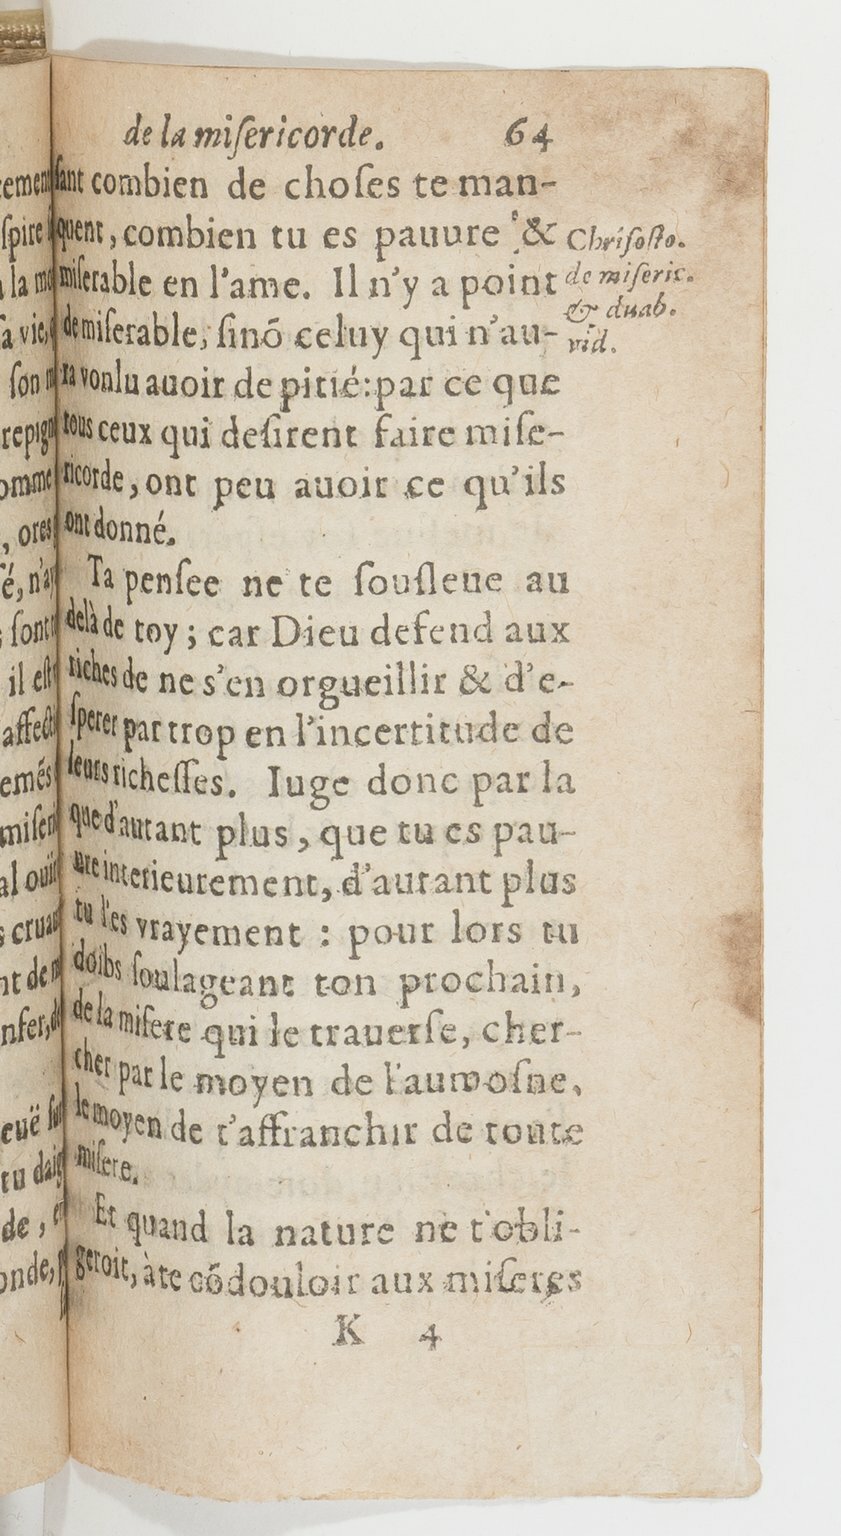 de la miſericorde. 64
ſant combien de choſes te man-
quent, combien tu es pauure & 
miſerable en l'ame. Il n'y a point
de miſerable, ſinō celuy qui n'au-
ra vonlu auoir de pitié: par ce que
tous ceux qui deſirent faire miſe-
ricorde, ont peu auoir ce qu'ils
ont donné.
Chriſoſto.
de miſeric.
& duab.
vid.
Ta penſee ne te ſouſleue au
delà de toy; car Dieu defend aux
riches de ne s'en orgueillir & d'e-
ſperer par trop en l'incertitude de
leurs richeſſes. Iuge donc par la
que d'autant plus, que tu es pau-
ure interieurement, d'autant plus
tu l'es vrayement : pour lors tu
doibs ſoulageant ton prochain,
de la miſere qui le trauerſe, cher-
cher par le moyen de l'aumoſne,
le moyen de t'affranchir de toute
miſere.
Et quand la nature ne t'obli-
geroit, à te cōdouloir aux miſeres
K 4